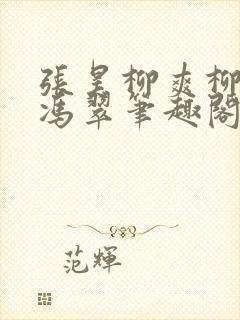 張昊柳爽柳
馮翠筆趣閣
范輝